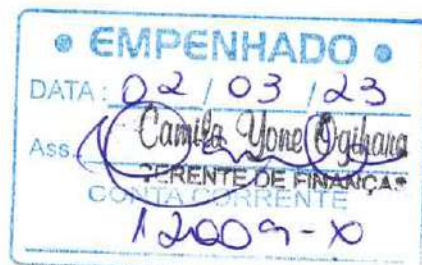 • EMPENHADO •
DATA: 02 / 03 / 23
Ass. Camila Yone Ogihara
GERENTE DE FINANÇAS
CONTA CORRENTE
12009-X